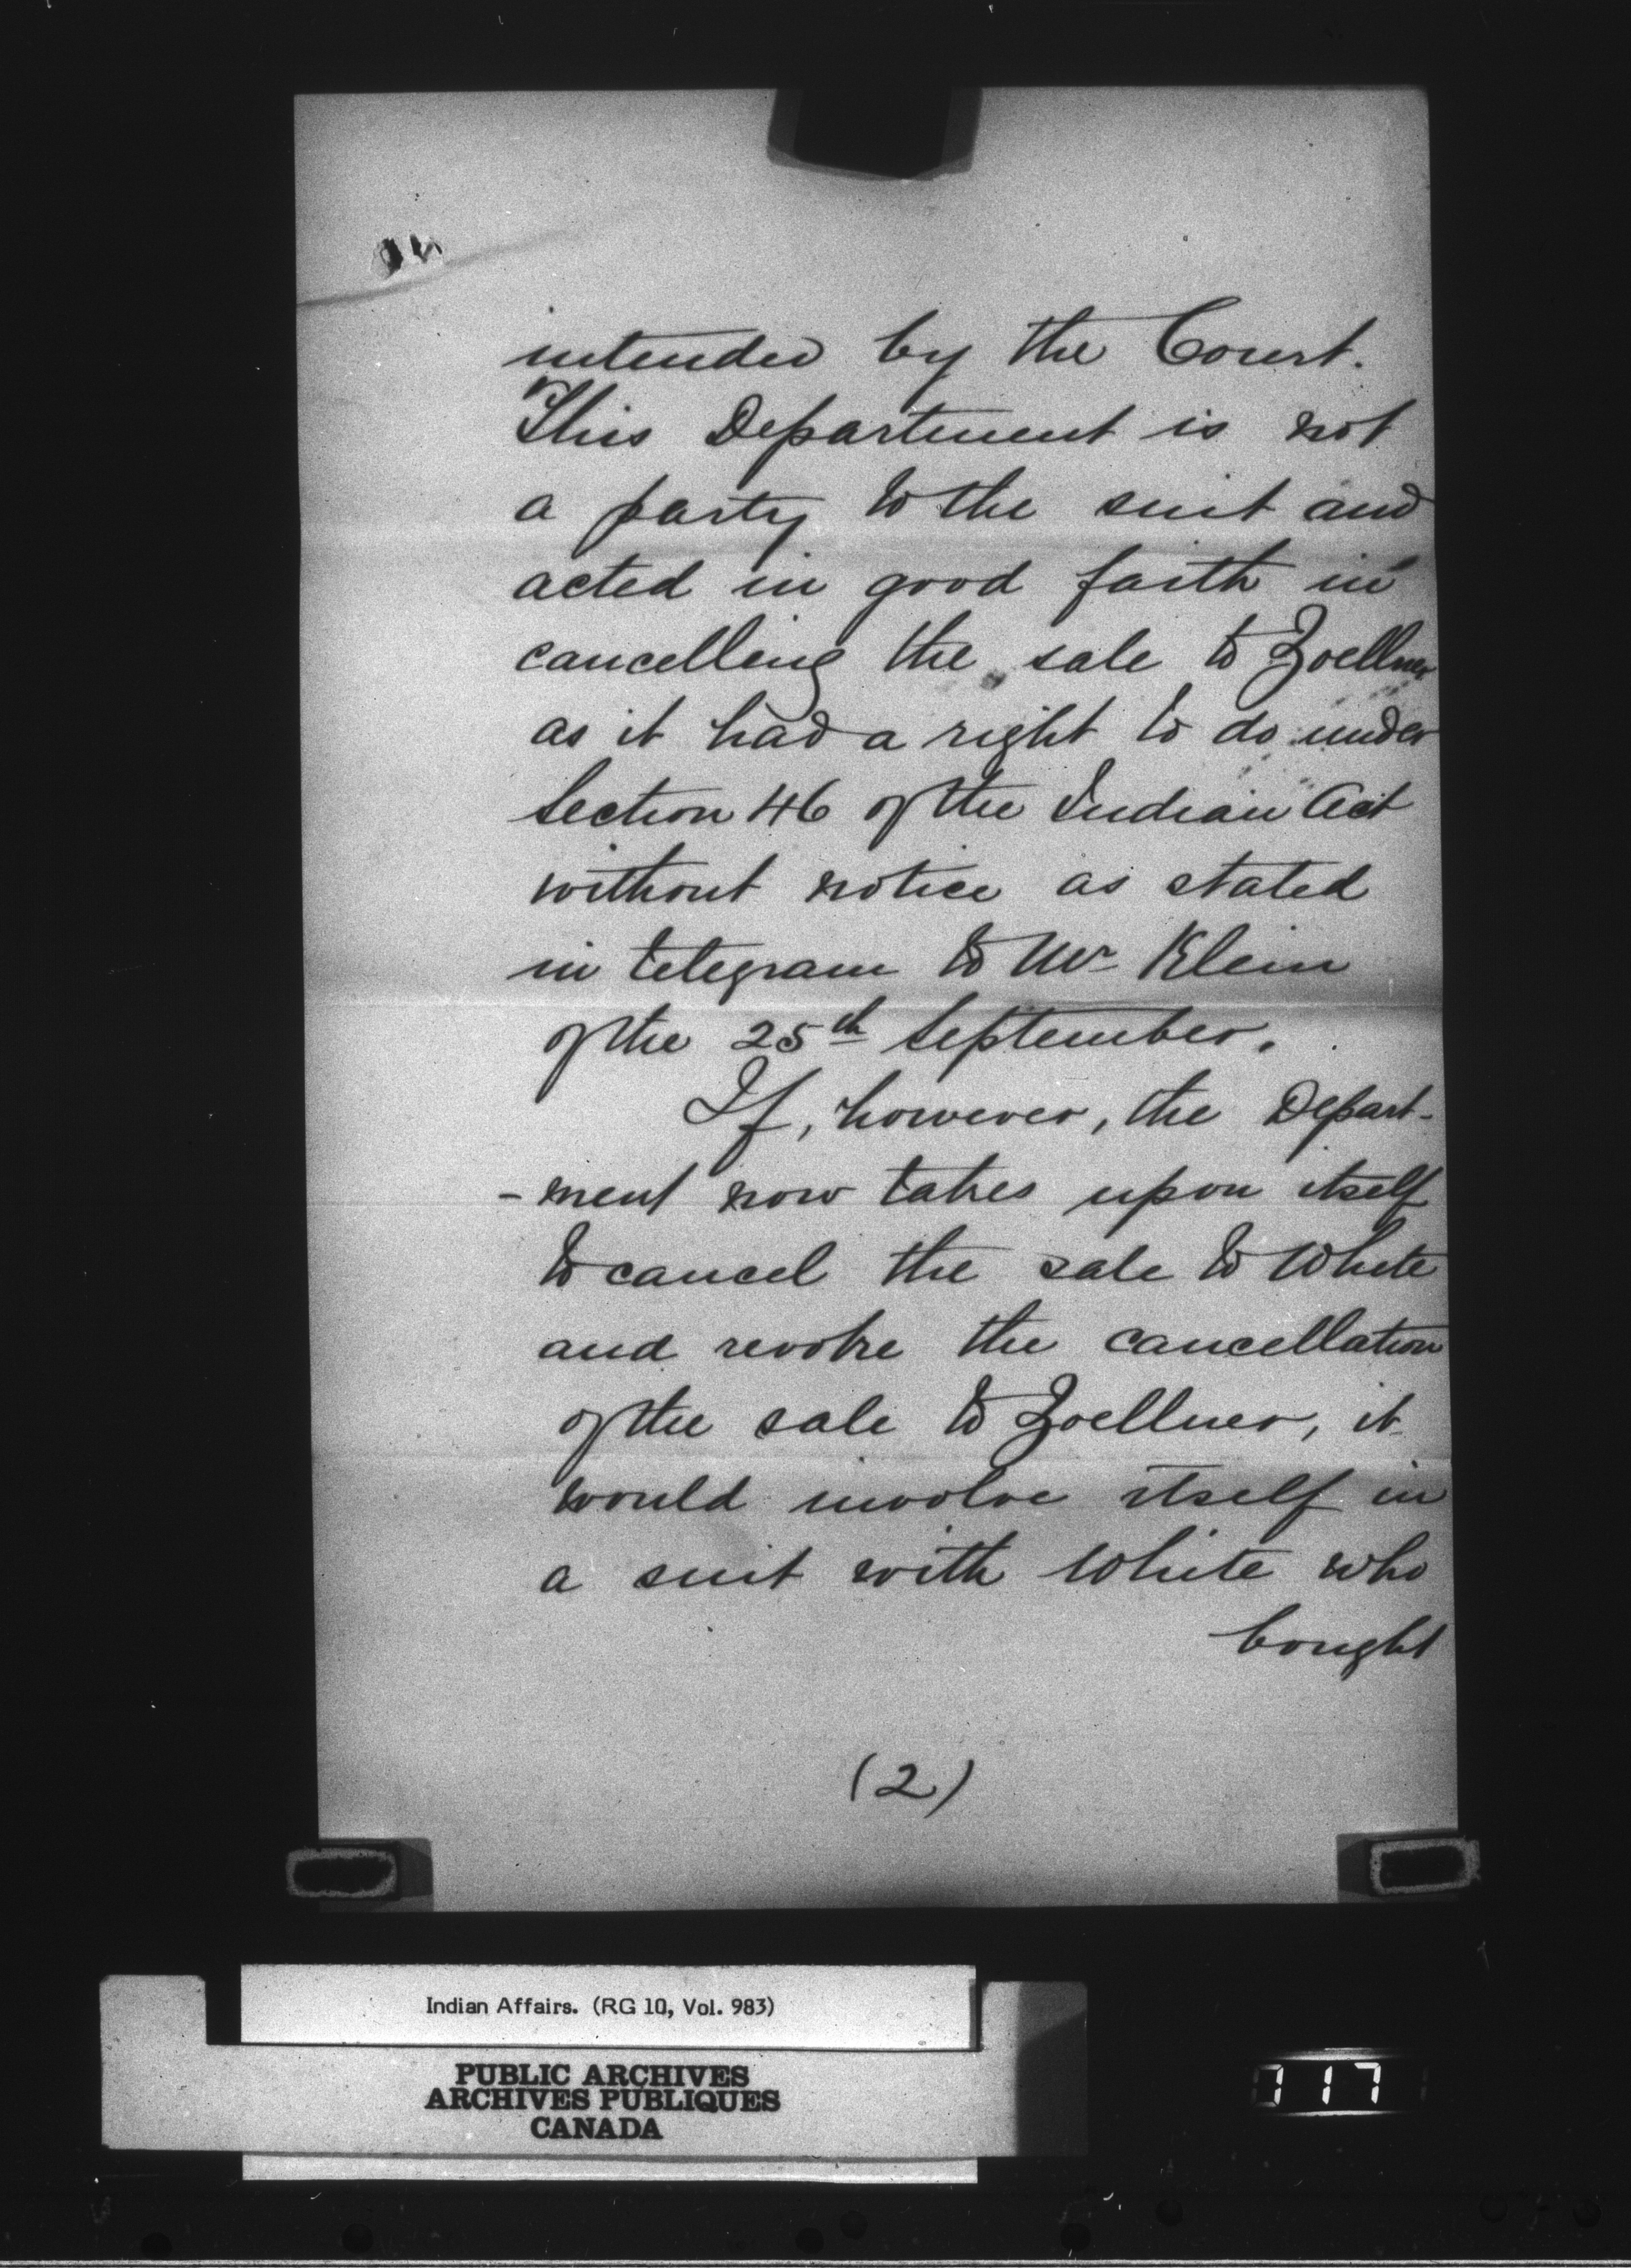 intended by the Court.
This Department is not
a party to the suit and
acted in good faith in
cancelling the sale to Zoellner
as it had a right to do under
Section 46 of the Indian Act
without notice as stated
in telegram to Mr Klein
of the 25th September.
If, however, the Depart-
-ment now takes upon itself
to cancel the sale to White
and revoke the cancellation
of the sale to Zoellner, it
would involve itself in
a suit with White who
bought
(2)
Indian Affairs. (RG 10, Vol. 983)
PUBLIC ARCHIVES
ARCHIVES PUBLIQUES
CANADA